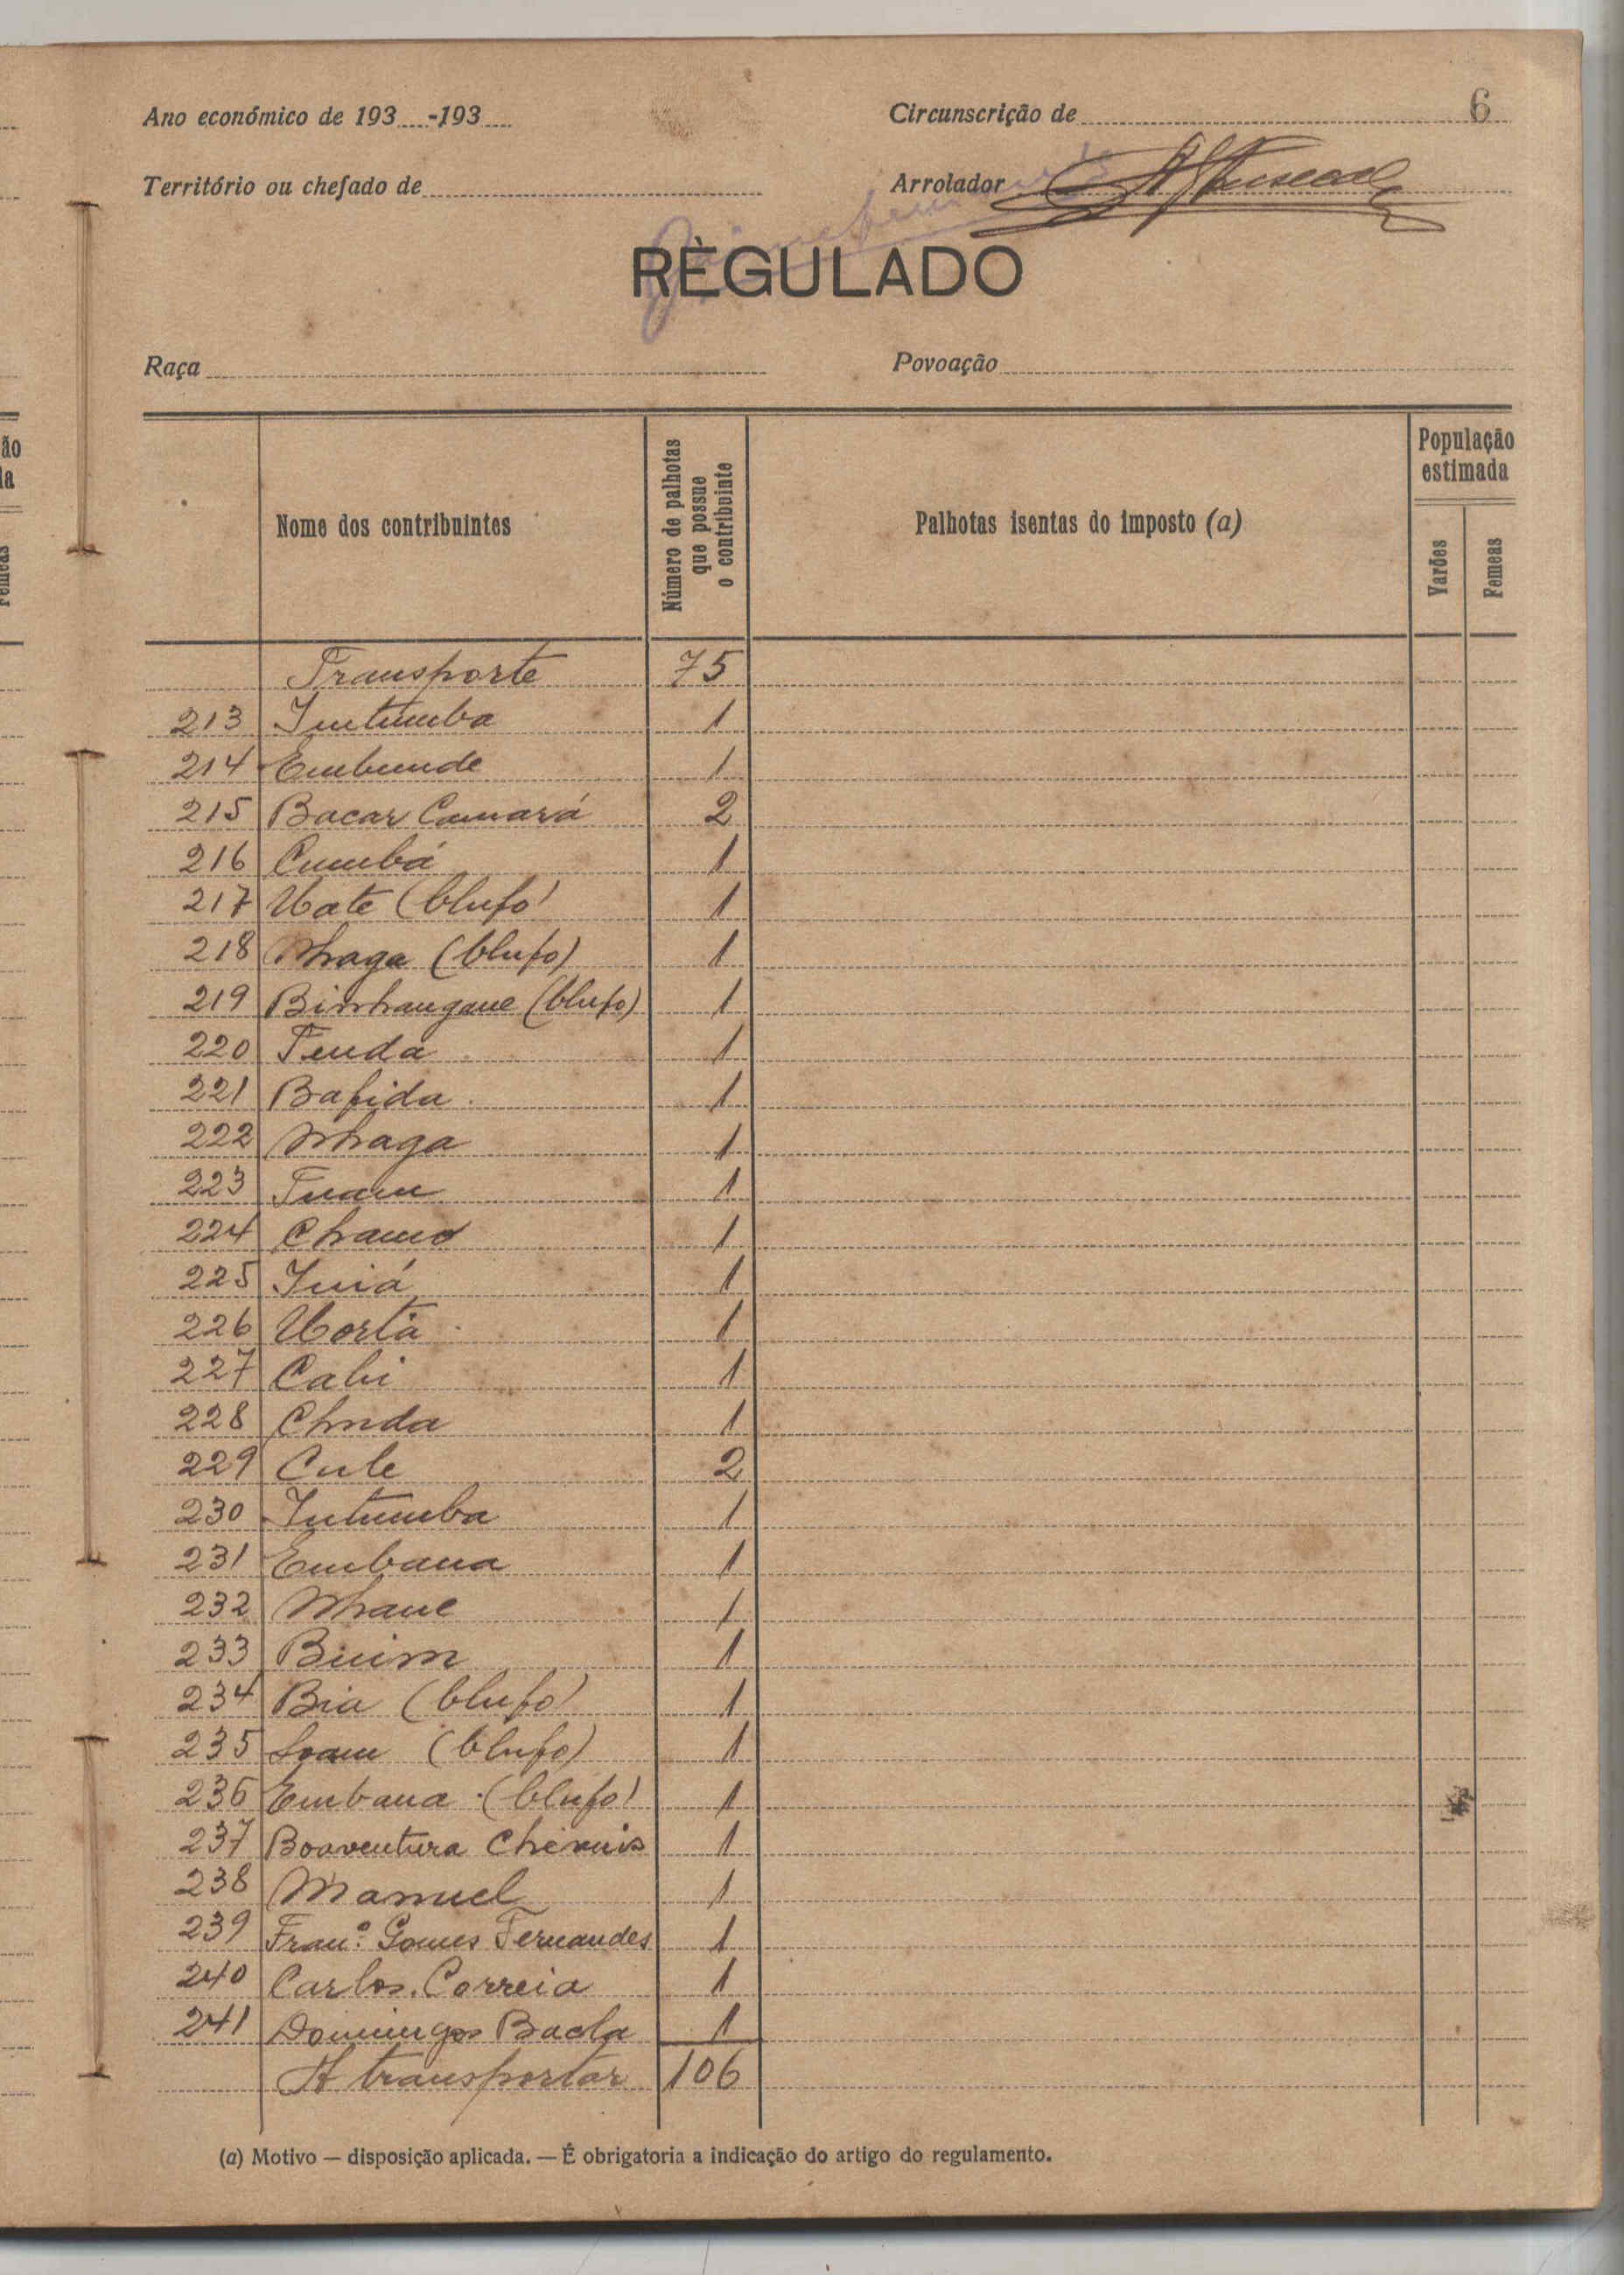 6
Ano económico de 193 -193
Circunscrição de
Território ou chefado de
Arrolador
RÈGULADO
Raça
Povoação
Nome dos contribuintes
Número de palhotas que possue o contribuinte
Palhotas isentas do imposto (a)
População estimada
Varões
Femeas
Transporte 75
213 Intumba 1
214 Embunde 1
215 Bacar Camará 2
216 Cumbá 1
217 Uate (blufo) 1
218 Nhaga (blufo) 1
219 Binhangane (blufo) 1
220 Tenda 1
221 Bafida 1
222 Nhaga 1
223 1
224 1
225 Iniá 1
226 Uorta 1
227 Cabi 1
228 1
229 Cule 2
230 Intumba 1
231 Embana 1
232 Nhane 1
233 1
234 Bia (blufo) 1
235 (blufo) 1
236 Embana (blufo) 1
237 Boaventura 1
238 Manuel 1
239 Fran.º Gomes Fernandes 1
240 Carlos Correia 1
241 Domingos 1
A transportar 106
(a) Motivo — disposição aplicada. — É obrigatoria a indicação do artigo do regulamento.